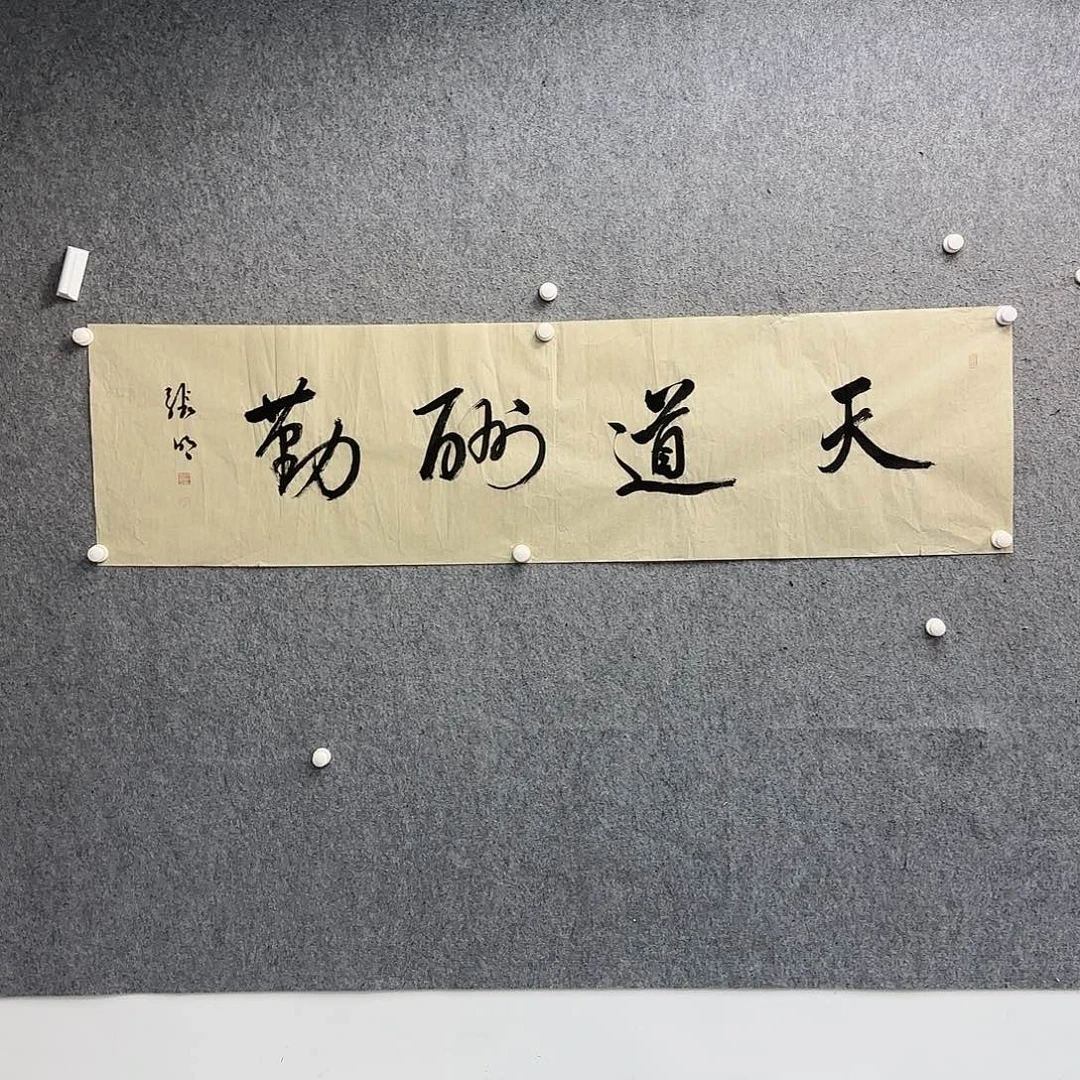 天道酬勤
張明